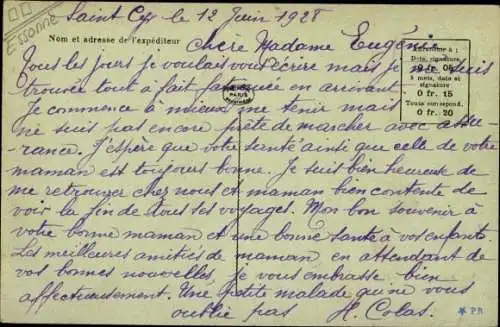 Essonne
Saint Cyr le 12 Juin 1928
Nom et adresse de l'expéditeur
Chère Madame Eugénie
Affranchir à :
Date, signature
0 fr. 05
5 mots, date et
signature
0 fr. 15
Toute correspond.
0 fr. 20
Tous les jours je voulais vous écrire mais je me suis
trouvée tout à fait fatiguée en arrivant
PARIS
Je commence à mieux me tenir mais
ne suis pas encore prête de marcher avec assu-
rance. J'espère que votre santé ainsi que celle de votre
maman est toujours bonne. Je suis bien heureuse de
me retrouver chez nous et maman bien contente de
voir la fin de tous ses voyages. Mon bon souvenir à
votre bonne maman et une bonne santé à vos enfants
Les meilleures amitiés de maman en attendant de
vos bonnes nouvelles, je vous embrasse bien
affectueusement. Une petite malade qui ne vous
oublie pas H. Colas.
PR